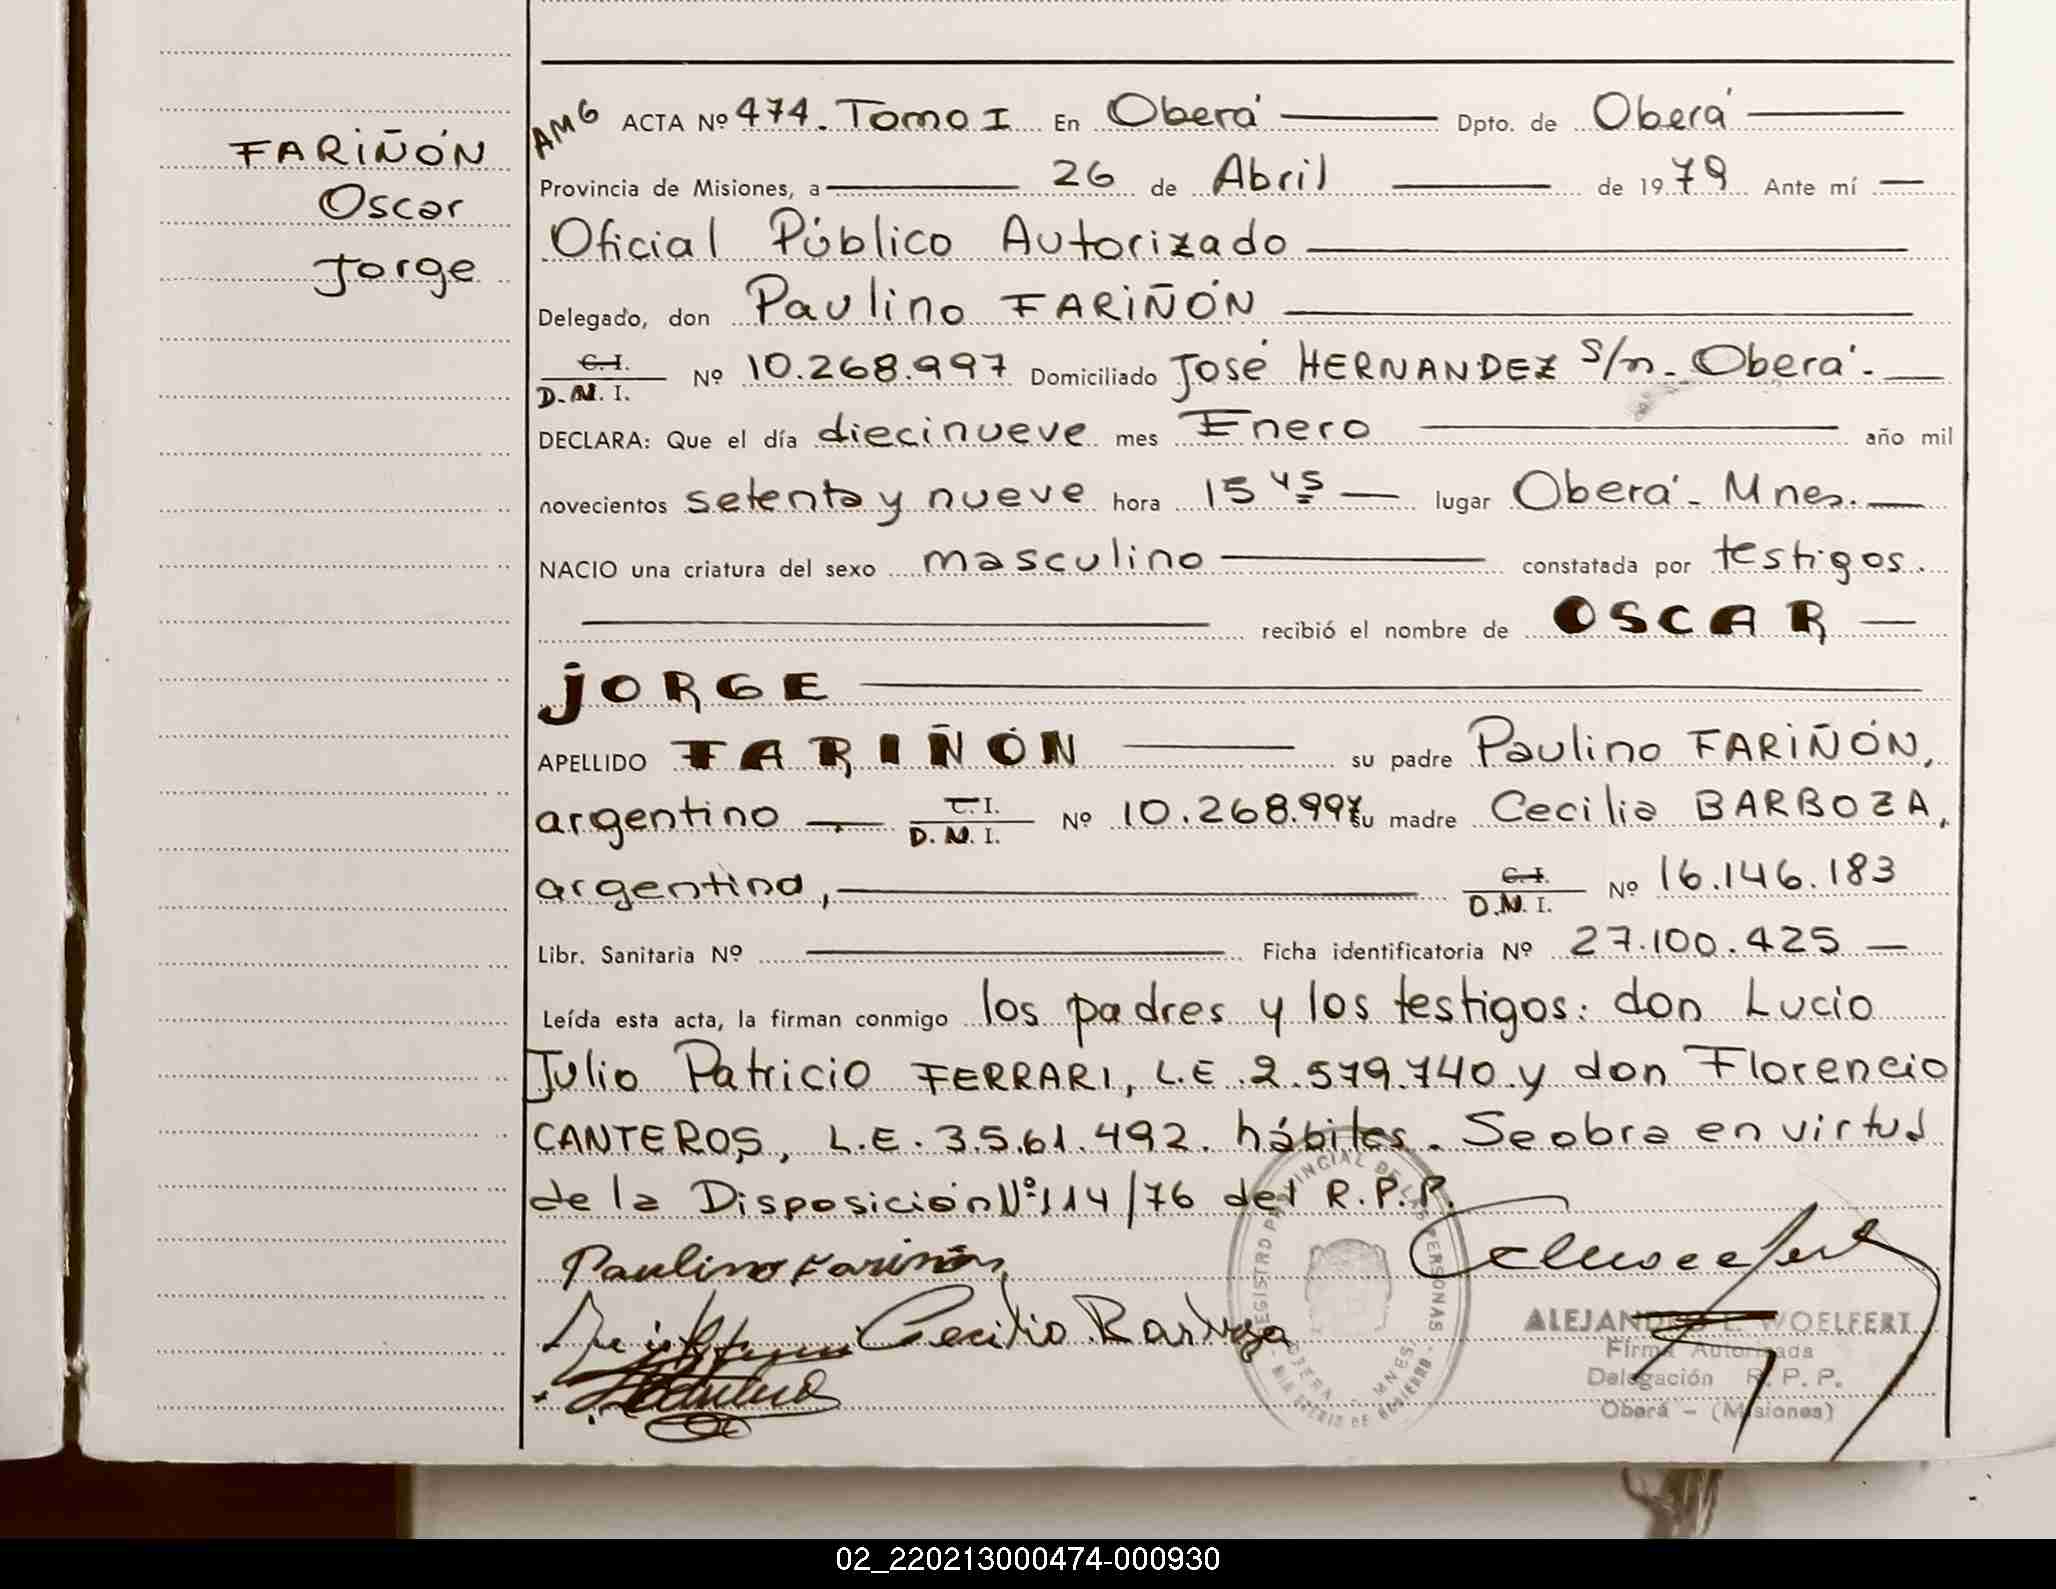 FARIÑÓN
Oscar
Jorge
AMG ACTA Nº 474. Tomo I En Oberá Dpto. de Oberá
Provincia de Misiones, a 26 de Abril de 1979 Ante mí
Oficial Público Autorizado
Delegado, don Paulino FARIÑÓN
C.I.
D.N.I. Nº 10.268.997 Domiciliado José HERNANDEZ s/n. Oberá.
DECLARA: Que el día diecinueve mes Enero año mil
novecientos setenta y nueve hora 15 45 lugar Oberá - Mnes.
NACIO una criatura del sexo masculino constatada por testigos.
recibió el nombre de OSCAR
JORGE
APELLIDO FARIÑÓN su padre Paulino FARIÑÓN,
argentino C.I.
D.N.I. Nº 10.268.997 su madre Cecilia BARBOZA,
argentina, C.I.
D.N.I. Nº 16.146.183
Libr. Sanitaria Nº Ficha identificatoria Nº 27.100.425
Leída esta acta, la firman conmigo los padres y los testigos: don Lucio
Julio Patricio FERRARI, L.E. 2.579.740 y don Florencio
CANTEROS, L.E. 3.561.492. hábiles. Se obra en virtud
de la Disposición Nº 114/76 del R.P.P.
Paulino Fariñón
Cecilia Barboza
REGISTRO PROVINCIAL DE LAS PERSONAS
MINISTERIO DE GOBIERNO
OBERA - MNES.
WOELFERT
Firma Autorizada
Delegación R. P. P.
Oberá - (Misiones)
02_220213000474-000930